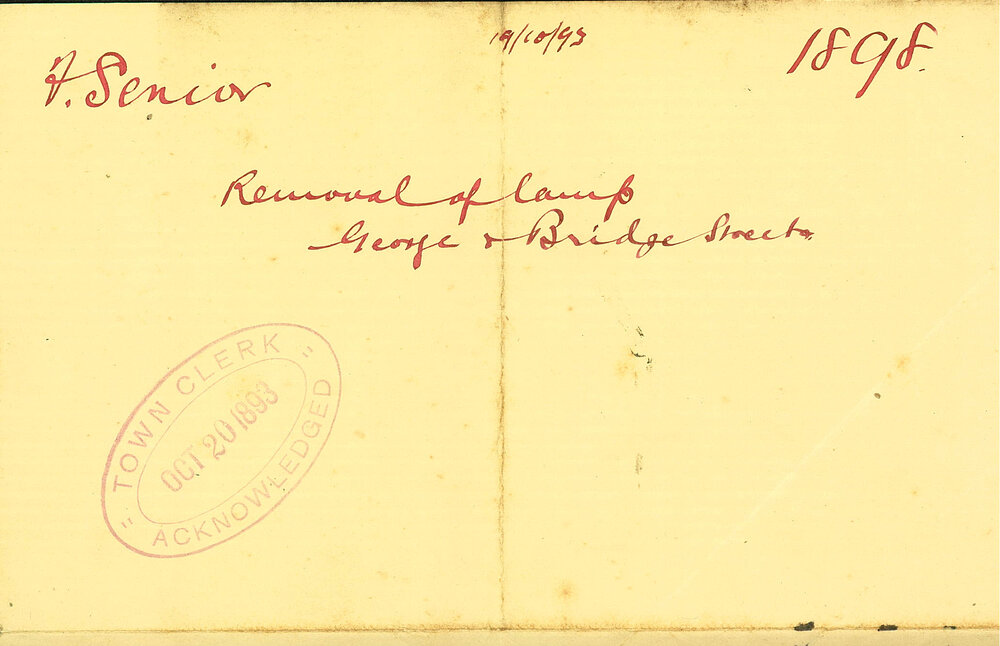 19/10/93
1898.
F. Senior
Removal of lamp
George & Bridge Streets
"TOWN CLERK"
OCT 20 1893
ACKNOWLEDGED